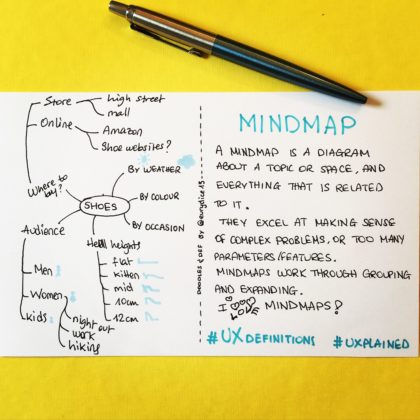 Store
high street
mall
Online
Amazon
Shoe websites?
Where to
buy?
SHOES
BY WEATHER
BY COLOUR
BY OCCASION
Audience
Men
Women
night out
work
hiking
kids
Heel heights
flat
kitten
mid
10cm
12cm
DOODLES & DEF BY @eurydice13
MINDMAP
A MINDMAP IS A DIAGRAM
ABOUT A TOPIC OR SPACE, AND
EVERYTHING THAT IS RELATED
TO IT.
THEY EXCEL AT MAKING SENSE
OF COMPLEX PROBLEMS, OR TOO MANY
PARAMETERS/FEATURES.
MINDMAPS WORK THROUGH GROUPING
AND EXPANDING.
I LOVE MINDMAPS!
#UXDEFINITIONS #UXPLAINED